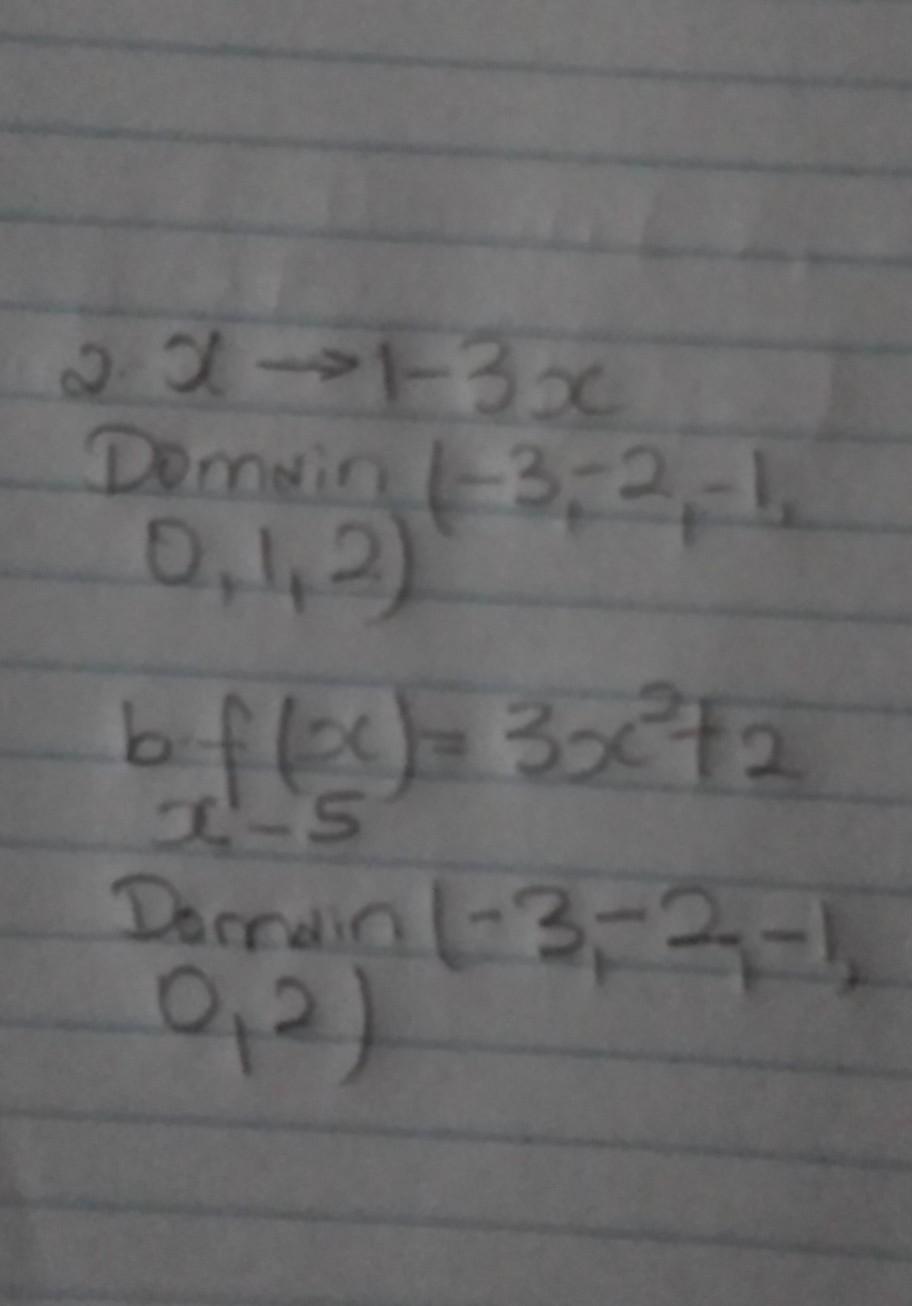 2. x → 1-3x
Domain (-3,-2,-1,
0,1,2)
b. f(x) = 3x²+2
x-5
Domain (-3,-2,-1,
0,2)